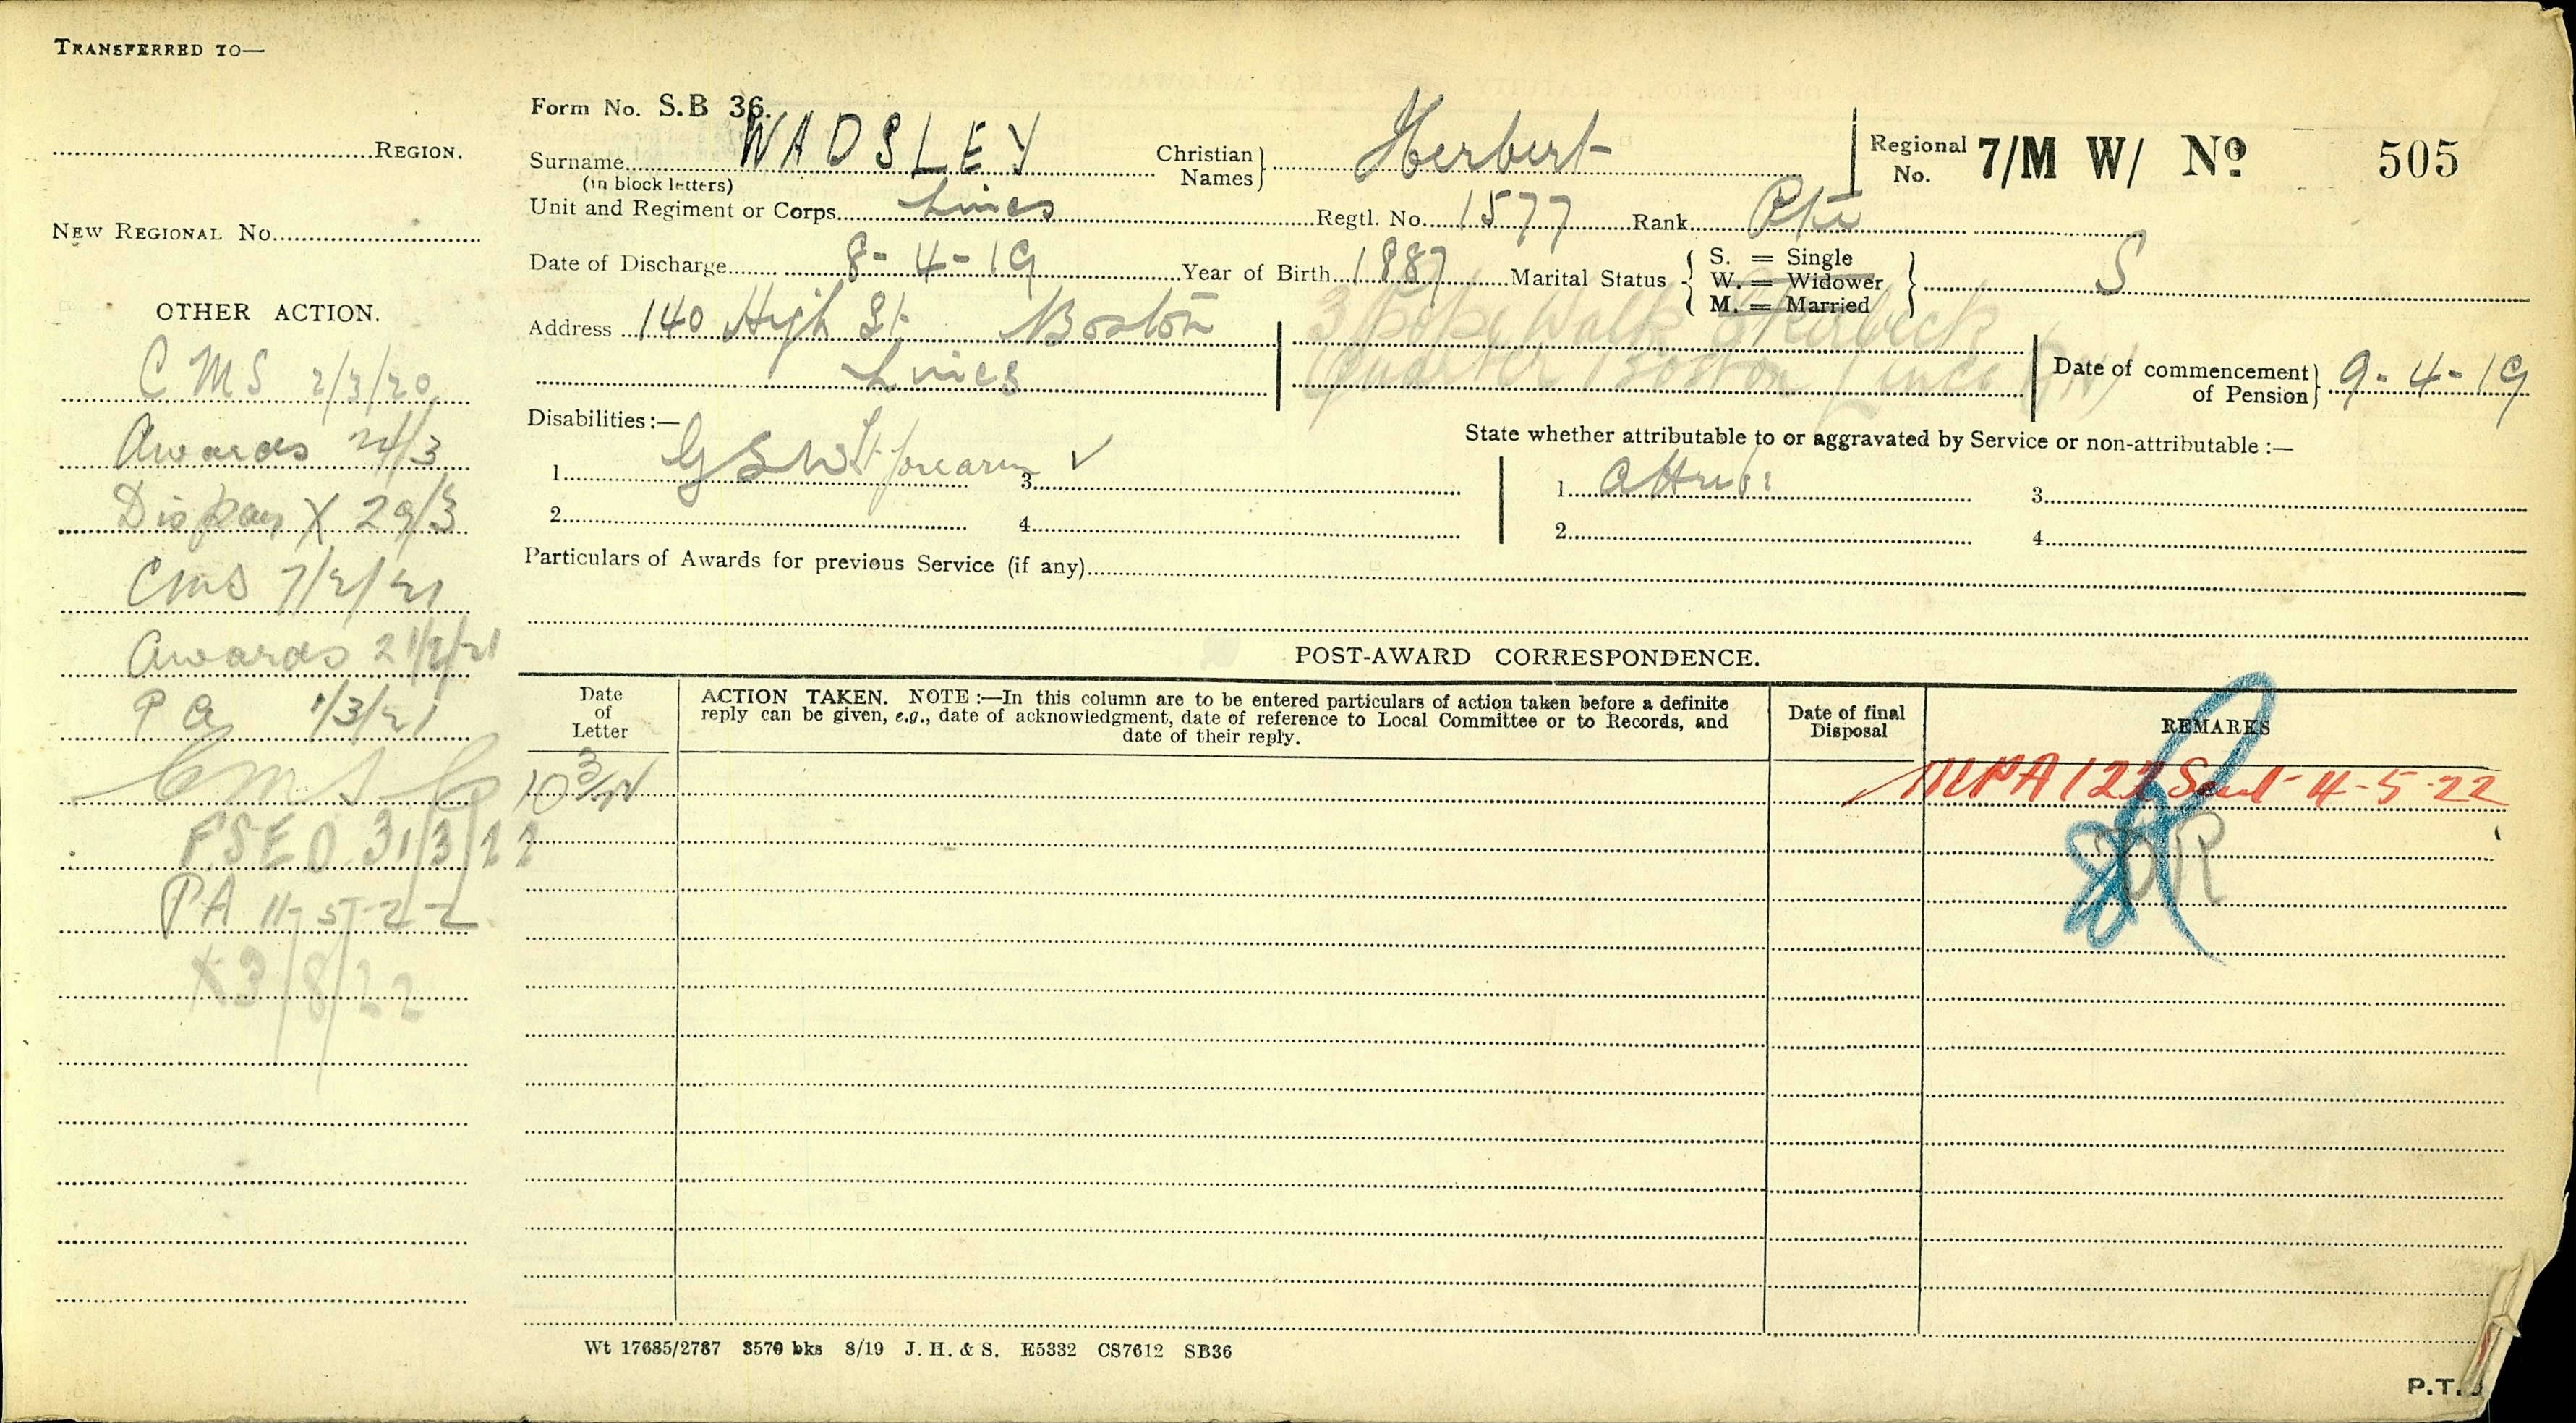 TRANSFERRED TO—
REGION.
NEW REGIONAL No.
OTHER ACTION.
C M S 2/3/20
Awards 24/3
Dispen X 29/3
CMS 7/2/21
Awards 21/2/21
P A 1/3/21
CMS 10 3/22
FSED 31/3/22
PA 11-5-22
X 3/8/22
Form No. S.B 36.
Surname WADSLEY Christian Names Herbert Regional No. 7/M W/ No 505
(in block letters)
Unit and Regiment or Corps Lincs Regtl. No. 1577 Rank Pte
Date of Discharge 8-4-19 Year of Birth 1887 Marital Status S. = Single W. = Widower M. = Married S
Address 140 High St Boston 3 Pipe Walk Skirbeck
Lincs Quarter Boston Lincs Date of commencement of Pension 9-4-19
Disabilities:— State whether attributable to or aggravated by Service or non-attributable:—
1. GSW Lt forearm ✓ 3. 1. Attrib: 3.
2. 4. 2. 4.
Particulars of Awards for previous Service (if any)
POST-AWARD CORRESPONDENCE.
Date of Letter
ACTION TAKEN. NOTE:—In this column are to be entered particulars of action taken before a definite
reply can be given, e.g., date of acknowledgment, date of reference to Local Committee or to Records, and
date of their reply.
Date of final Disposal
REMARKS
MPA 122 Sent 4-5-22
DR
Wt 17685/2787 3570 bks 8/19 J. H. & S. E5332 CS7612 SB36
P.T.